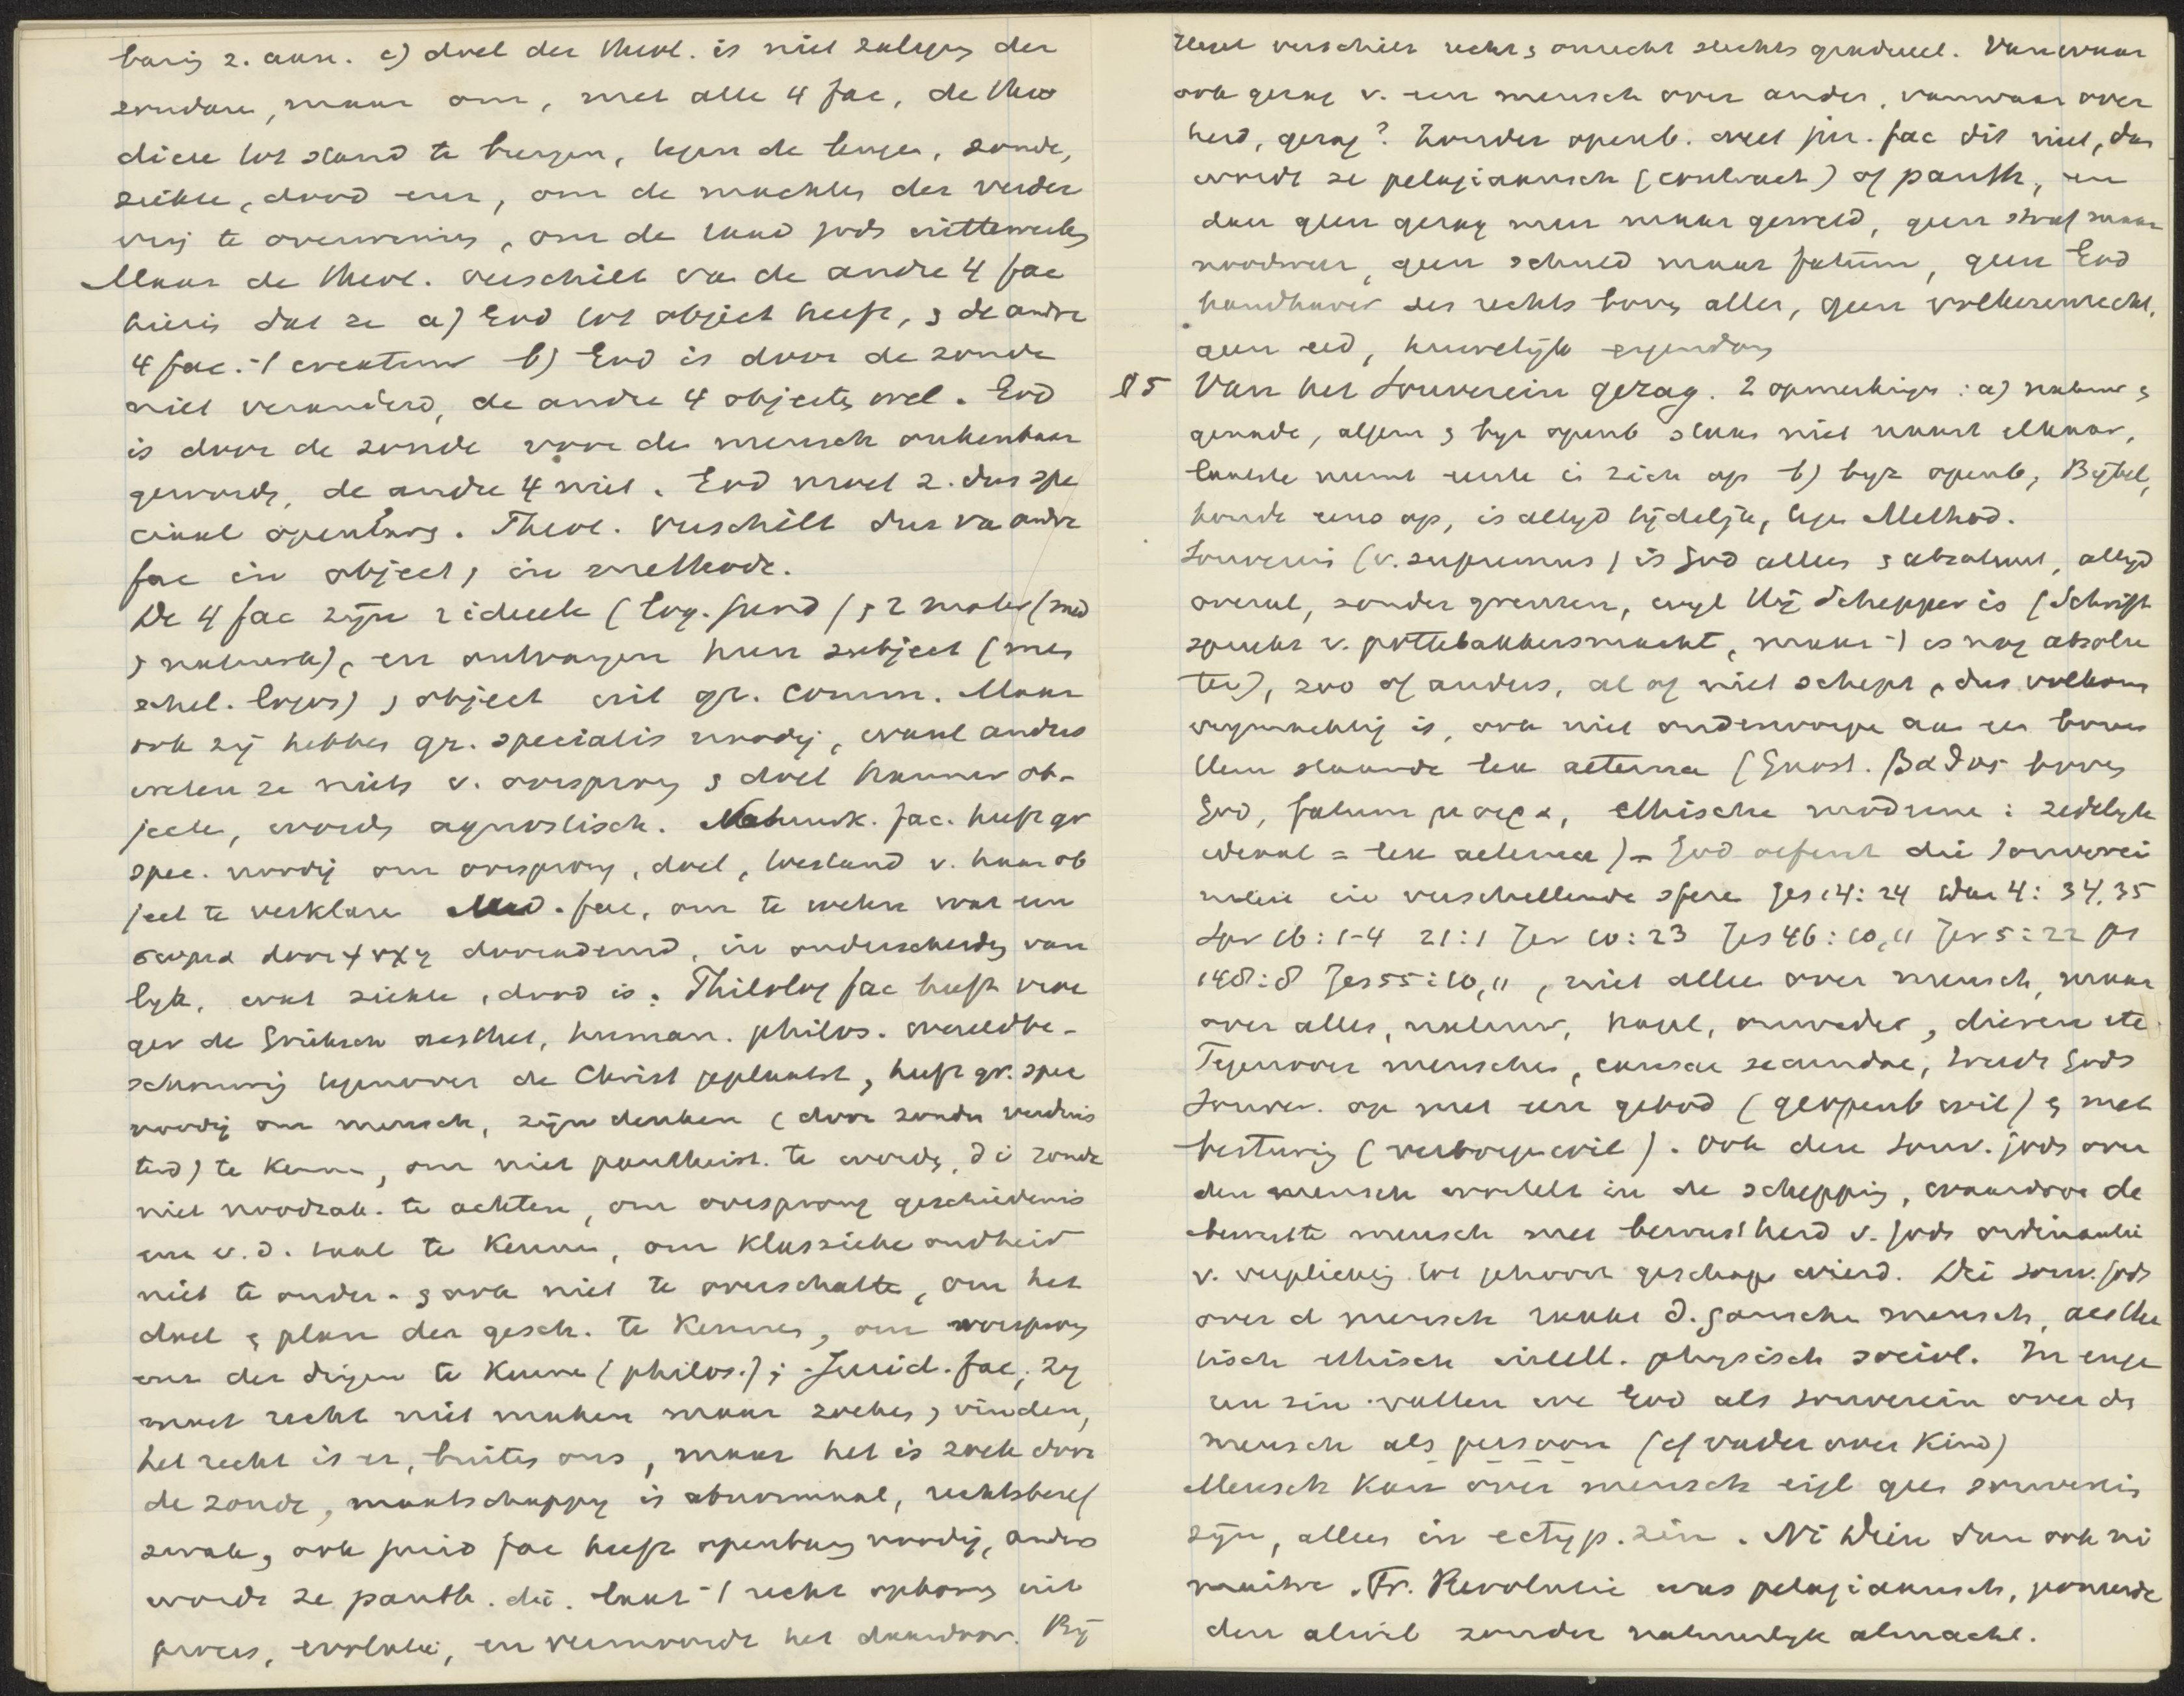 baring z. aan. c) doel der theol. is niet zaligng der
zondare, maar om, met alle 4 fac, de theo
dicee tot stand te brengen, tegen de leugen, zonde,
ziekte, dood enz, om de machten der verder
ving te overwinnen, om de raad gods uittewerken
Maar de theol. verschilt va de andre 4 fac
hierin dat ze a) God tot object heeft, & de andre
4 fac. -/ creatuur b) God is door de zonde
niet veranderd, de andre 4 objecten wel. God
is door de zonde voor de mensch onkenbaar
geworden, de andre 4 niet. God moet z. dus spe
ciaal openbarg. Theol. verschilt dus va andre
fac in object, in methode.
De 4 fac zijn 2 ideeele (log. jurid) & 2 mater (med
& natuurk), en ontvangen hun subject (men
schel. logos) & object uit gr. comm. Maar
ook zij hebben gr. specialis noodig, want anders
weten ze niets v. oorsprong & doel hunner ob-
jecte, worden agnostisch. Natuurk. fac. heeft gr
spec. noodig om oorsprong, doel, bestand v. haar ob
ject te verklare Med. fac, om te weten wat een
σωμα door ψυχη doorademd, in onderscheidg van
lijk, wat ziekte, dood is. Philolog fac heeft vroe
ger de Grieksch aesthet, human. philos. wereldbe-
schouwing tegenover de Christ geplaatst, heeft gr. spec
noodig om mensch, zijn denken (door zonde verduis
terd) te kenne, om niet pantheist. te worden, d i zonde
niet noodzak. te achten, om oorsprong geschiedenis
enz v. d. taal te kenne, om klassieke oudheid
niet te onder- & ook niet te overschatte, om het
doel & plan der gesch. te kennen, om oorsprong
enz der dingen te kenne (philos.); Jurid. fac, zij
moet recht niet maken maar zoeken & vinden,
het recht is er, buiten ons, maar het is zoek door
de zonde, maatschappy is abnormaal, rechtsbesef
zwak, ook jurid fac heeft openbarg noodig, anders
wordt ze panth. d.i. laat -/ recht opkomen uit
proces, evolutie, en vermoordt het daardoor. Bij
Hegel verschilt recht & onrecht slechts gradueel. Vanwaar
ook gezag v. een mensch over ander, vanwaar over
heid, gezag? Zonder openb. weet jur. fac dit niet, dan
wordt ze pelagiaansch (contract) of panth, en
dan geen gezag meer maar geweld, geen straf maar
noodweer, geen schuld maar fatum, geen God
handhaver des rechts boven alles, geen volkerenrecht,
geen eed, huwelijk eigendom
§5 Van het Souverein gezag. 2 opmerkingen: a) natuur &
genade, algem & byz openb staan niet naast elkaar,
laatste neemt eerste in zich op b) byz openb, Bijbel,
houdt eens op, is altyd tijdelijk, tegen Method.
Souverein (v. supremus) is God alleen & absoluut, altyd
overal, zonder grenzen, wyl Hij Schepper is (Schrift
spreekt v. pottebakkersmacht, maar -/ is nog absolu
ter), zoo of anders, al of niet schept, dus volkomen
vrijmachtig is, ook niet onderworpe aan een boven
Hem staande lex aeterna (Gnost. βαθος boven
God, fatum μοιρα, ethische moderne: zedelyk
ideaal = lex aeterna) - God oefent die souverei
niteit in verschillende sfere Jes 14:24 Dan 4: 34,35
Spr 16:1-4 21:1 Jer 10:23 Jes 46:10,11 Jer 5:22 Ps
148:8 Jes 55:10,11, niet alleen over mensch, maar
over alles, natuur, hagel, onweder, dieren etc
Tegenover menschen, causae secundae, treedt Gods
Souver. op met een gebod (geopenb wil) & met
besturing (verborgen wil). Ook deze souv. gods over
den mensch wortelt in de schepping, waardoor de
bewuste mensch met bewustheid v. gods ordinantie
v. verplichtg tot gehoorz geschape wierd. Die souv. gods
over d mensch raakt d. gansche mensch, aesthe
tisch ethisch intell. physisch sociol. In enge
ren zin vatten we God als souverein over de
mensch als persoon (cf vader over kind)
Mensch kan over mensch eigl geen souverein
zijn, alleen in ectyp. zin. Ni Dieu dan ook ni
maître. Fr. Revolutie was pelagiaansch, poneerde
den alwil zonder natuurlyk almacht.